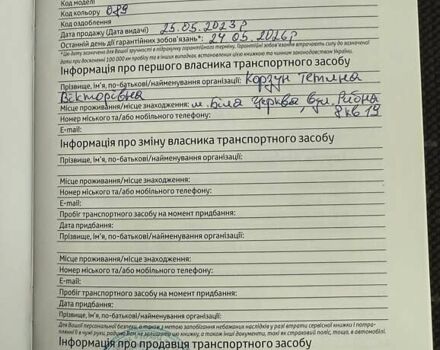 Код моделі
Код кольору 089
Код оздоблення
Дата продажу (Дата видачі) 25.05.2023р
Останній день дії гарантійних зобов'язань*: 24.05.2026р
*Ця дату зазначені для Вашої зручності в підрахунку гарантійного терміну. Гарантійні зобов'язання втрачають силу до зазначеної
дати при досягненні 100 000 км пробігу та в інших випадках, встановлених цією книжкою та чинним законодавством України.
Інформація про першого власника транспортного засобу
Прізвище, Ім'я, по-батькові/найменування організації: Корзун Тетяна
Вікторівна
Місце проживання/місце знаходження: м. Біла Церква, вул. Рибна
Номер міського та/або мобільного телефону: 8 кв 19
E-mail:
Інформація про зміну власника транспортного засобу
Прізвище, Ім'я, по-батькові/найменування організації:
Місце проживання/місце знаходження:
Номер міського та/або мобільного телефону:
E-mail:
Пробіг транспортного засобу на момент придбання:
Дата придбання:
Прізвище, Ім'я, по-батькові/найменування організації:
Місце проживання/місце знаходження:
Номер міського та/або мобільного телефону:
E-mail:
Пробіг транспортного засобу на момент придбання:
Дата придбання:
Прізвище, Ім'я, по-батькові/найменування організації:
Для Вашої персональної безпеки, а також з метою запобігання небажаних наслідків у разі втрати сервісної книжки і потрап-
ляння її в чужі руки, радимо Вам не залишати цю книжку, а також інші документи, такі як страховий поліс, тощо, в автомобілі.
Інформація про продавця транспортного засобу